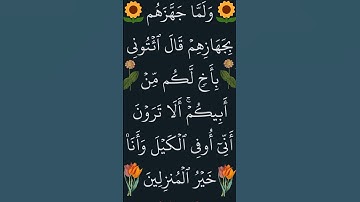 وَلَمَّا جَهَّزَهُم
بِجَهَازِهِمۡ قَالَ ٱئۡتُونِي
بِأَخٖ لَّكُم مِّنۡ
أَبِيكُمۡۚ أَلَا تَرَوۡنَ
أَنِّيٓ أُوفِي ٱلۡكَيۡلَ وَأَنَا۠
خَيۡرُ ٱلۡمُنزِلِينَ